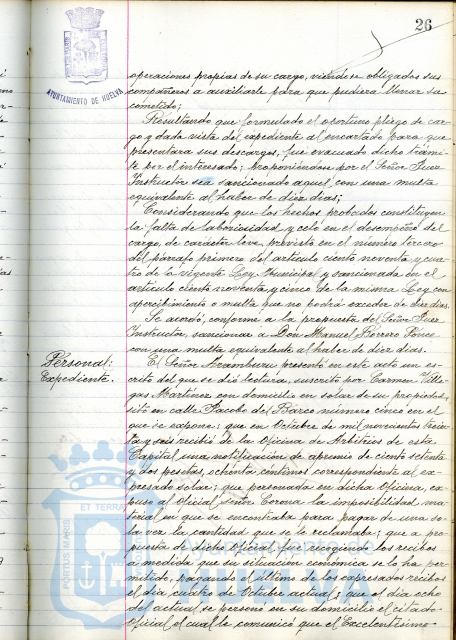 26
AYUNTAMIENTO DE HUELVA
operaciones propias de su cargo, viéndose obligados sus
compañeros a auxiliarle para que pudiera llenar su
cometido;
Resultando que formulado el oportuno pliego de car-
go y dada vista del expediente al encartado para que
presentara sus descargos, fue evacuado dicho trámi-
te por el interesado; proponiéndose por el Señor Juez
Instructor sea sancionado aquel con una multa
equivalente al haber de diez días;
Considerando que los hechos probados constituyen
la falta de laboriosidad y celo en el desempeño del
cargo, de carácter leve, previsto en el número tercero
del párrafo primero del artículo ciento noventa y cua-
tro de la vigente Ley Municipal y sancionada en el
artículo ciento noventa y cinco de la misma Ley con
apercibimiento o multa que no podrá exceder de diez días.
Se acordó, conforme a la propuesta del Señor Juez
Instructor, sancionar a Don Manuel Borrero Ponce
con una multa equivalente al haber de diez días.
Personal:
Expediente.
El Señor Aramburu presentó en este acto un es-
crito del que se dió lectura, suscrito por Carmen Ville-
gas Martínez con domicilio en solar de su propiedad,
sito en calle Jacobo del Barco número cinco en el
que se expone: que en Octubre de mil novecientos trein-
ta y seis recibió de la Oficina de Arbitrios de esta
Capital una notificación de apremio de ciento setenta
y dos pesetas, ochenta céntimos correspondiente al ex-
presado solar; que personada en dicha Oficina, ex-
puso al Oficial señor Corona la imposibilidad ma-
terial en que se encontraba para pagar de una so-
la vez la cantidad que se le reclamaba; que a pro-
puesta de dicho oficial fué recogiendo los recibos
a medida que su situación económica se lo ha per-
mitido, pagando el último de los expresados recibos
el día cuatro de Octubre actual; que el día ocho
del actual se personó en su domicilio el citado
Oficial el cual le comunicó que el Excelentísimo
PORTUS MARIS
ET TERRAE